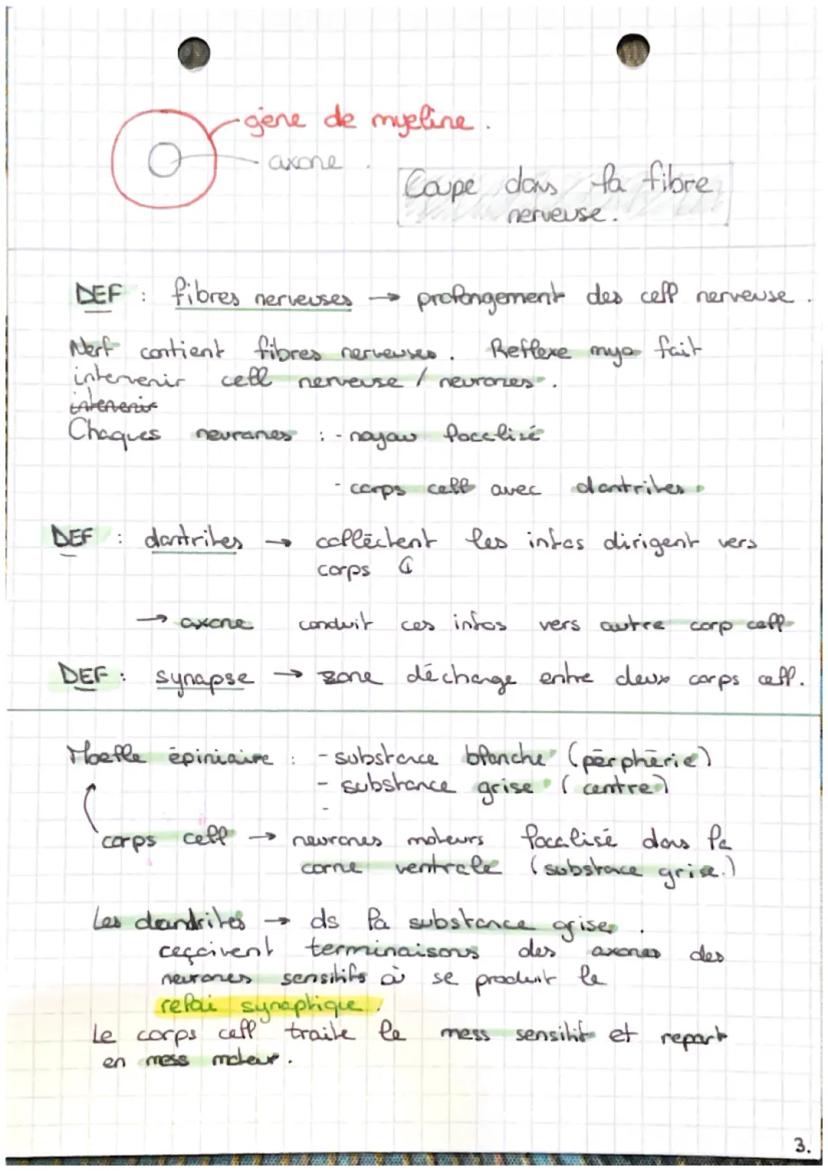 gène de myeline.
axone.
Coupe dans la fibre
nerveuse.
DEF : fibres nerveuses → prolongement des cell nerveuse.
Nerf contient fibres nerveuses. Reflexe myo fait
intervenir cell nerveuse / neurones.
intervenir
Chaques neurones : - noyau localisé
- corps cell avec dantrites.
DEF : dantrites → collectent les infos dirigent vers
corps C
→ axone conduit ces infos vers autre corp cell
DEF : synapse → zone déchange entre deux corps cell.
Moelle épiniaire : - substance blanche (périphérie)
- substance grise (centre)
-
corps cell → neurones moteurs localisé dans la
corne ventrale (substance grise.)
Les dendrites → ds la substance grise.
reçoivent terminaisons des axones des
neurones sensitifs où se produit le
relai synaptique.
Le corps cell traite le mess sensitif et repart
en mess moteur.
3.